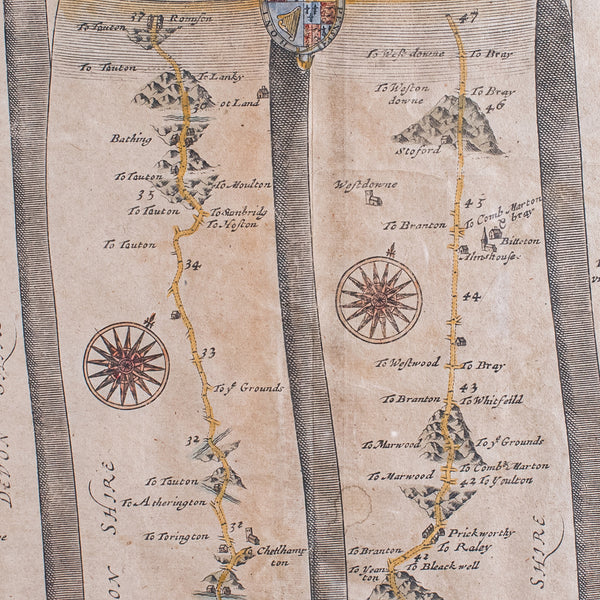 37
Romson
To Tauton
To Tauton
To Lanky
ot Land
36
Bathing
To Tauton
To Moulton
35
To Tauton
To Sunbridg
To Heston
To Tauton
34
33
To yᵉ Grounds
32
To Tauton
To Atherington
To Torington
31
To Chettlhamp
ton
DEVON
ON SHIRE
47
To West downe
To Bray
To Weston
downe
To Bray
46
Stoford
Westdowne
45
To Comb Marton
& bray
To Branton
Bitteton
Almshouse
44
To Westwood
To Bray
43
To Branton
To Whitfeild
To Marwood
To yᵉ Grounds
To Combᵉ Marton
To Marwood
42
To Youlton
Prickworthy
To Raley
To Branton
41
To Bleackwell
To Yean
ton
SHIRE